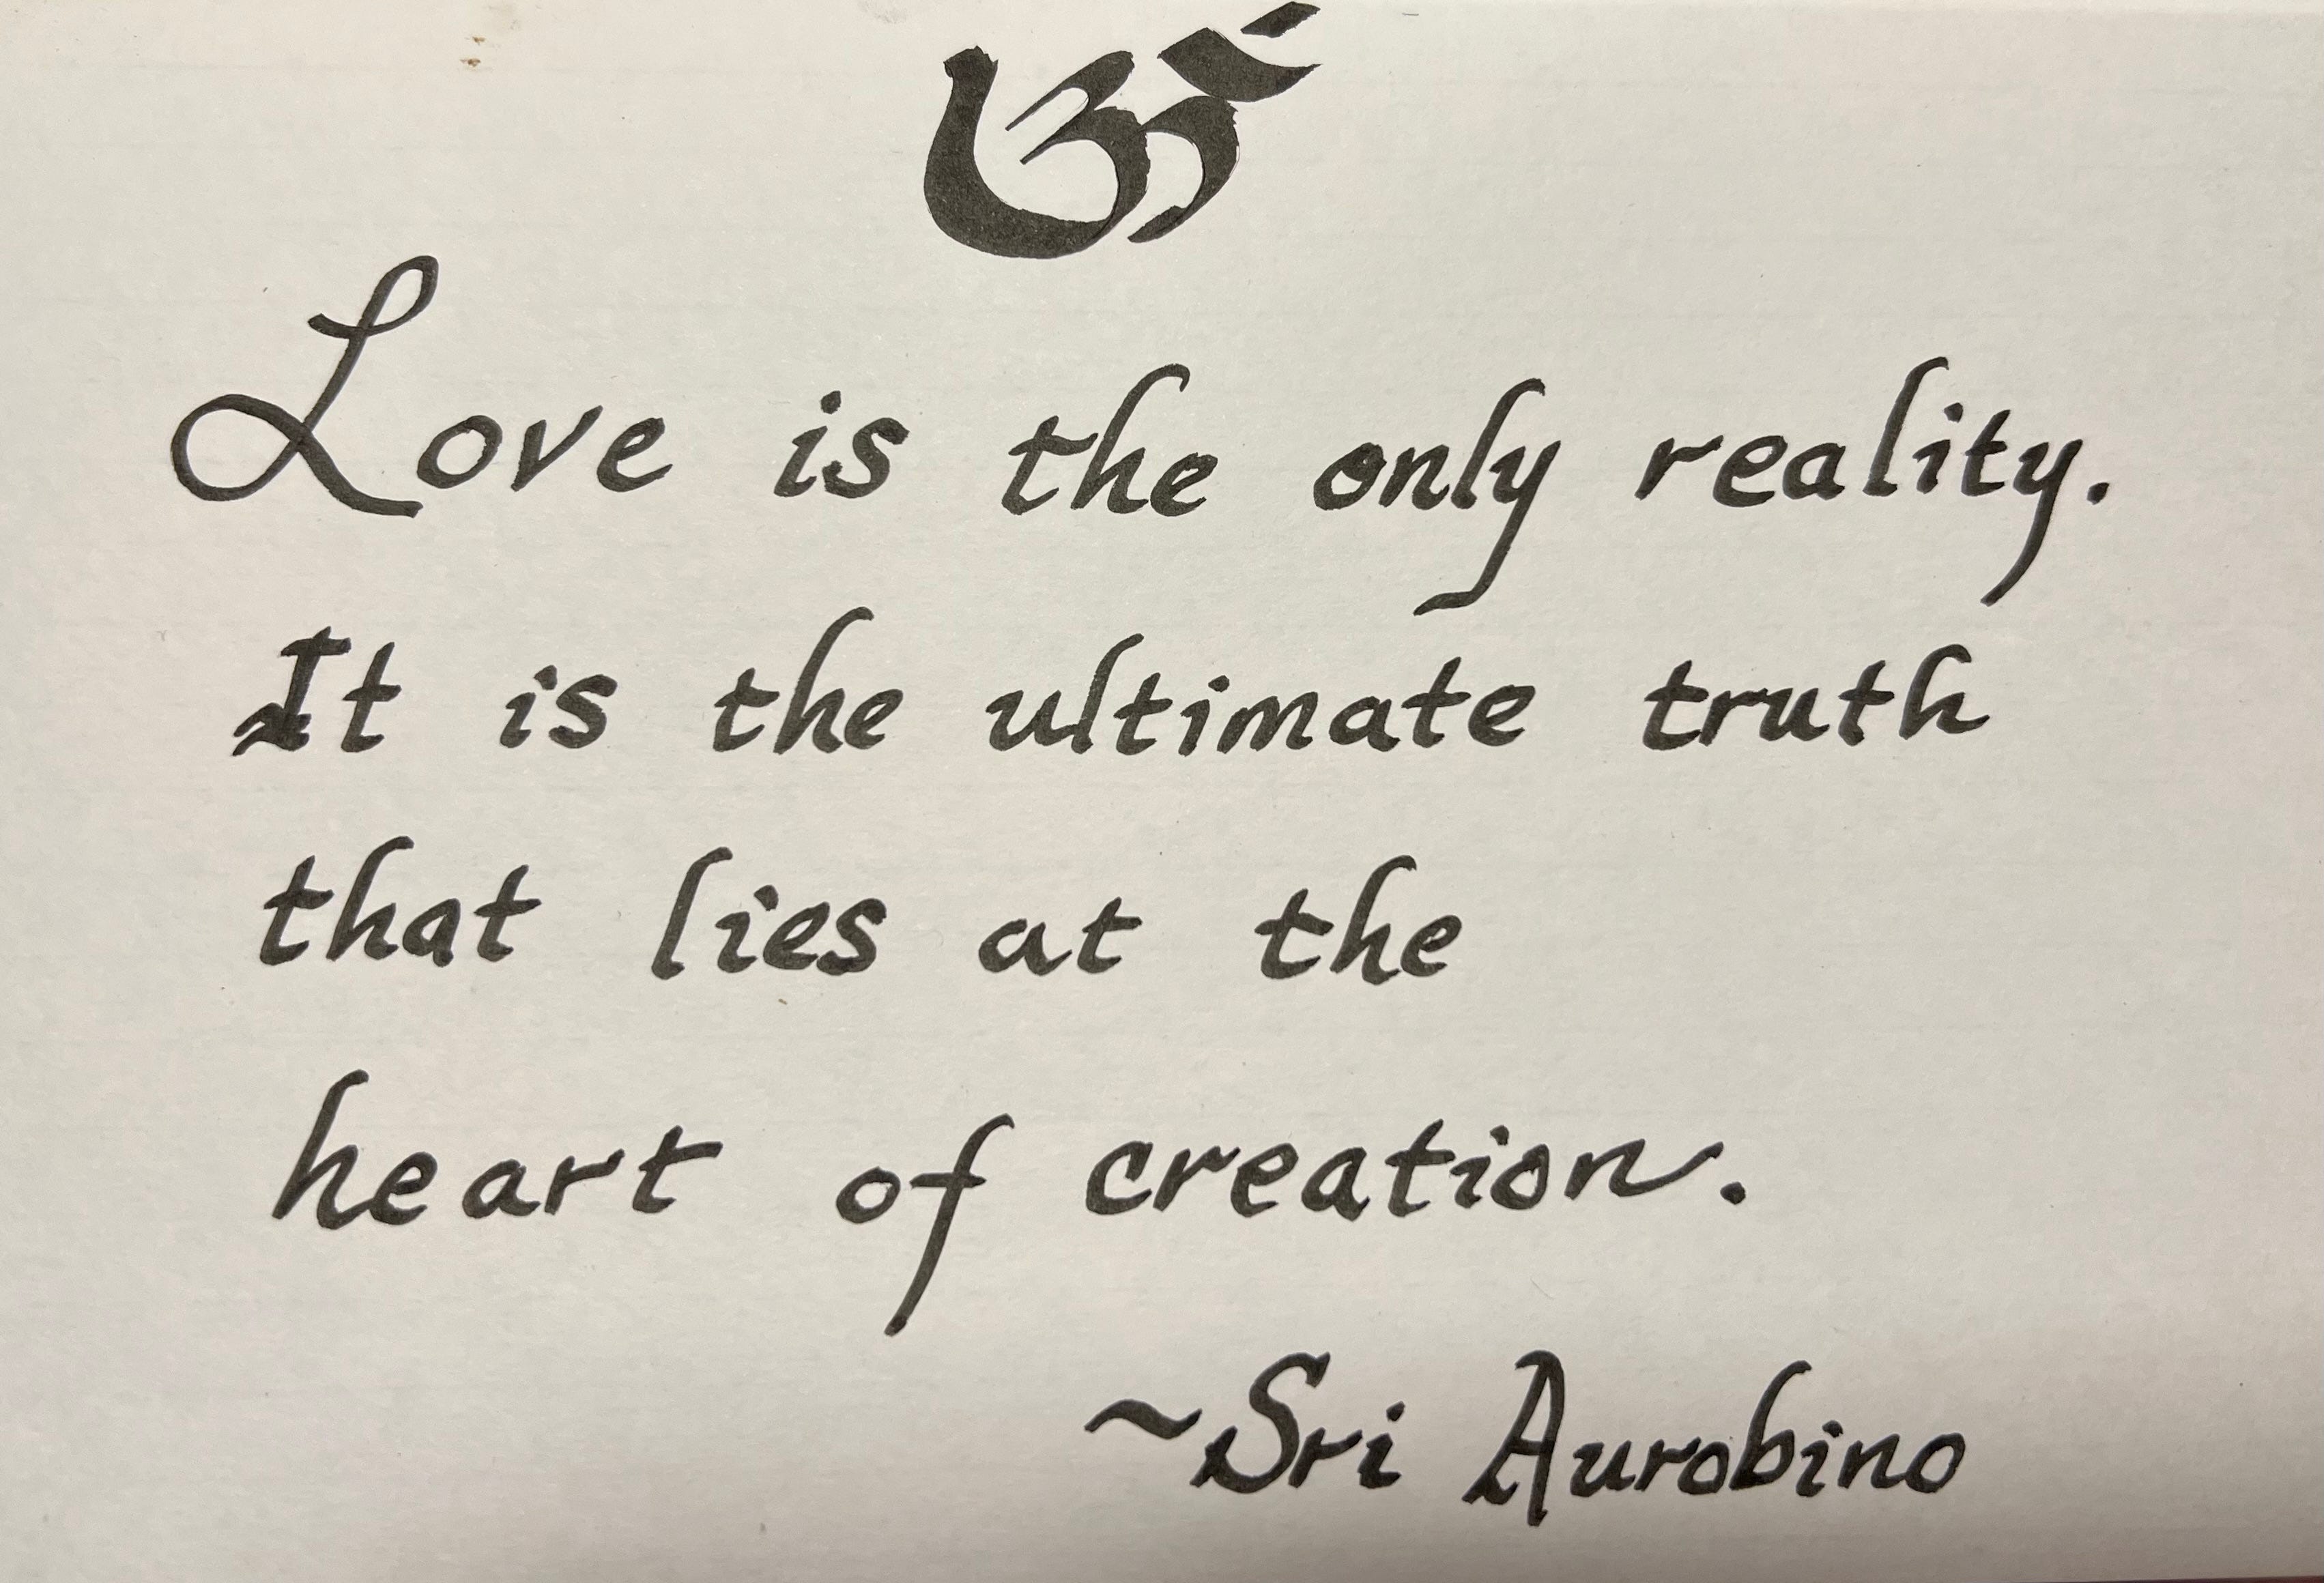 ॐ
Love is the only reality.
It is the ultimate truth
that lies at the
heart of creation.
~Sri Aurobino